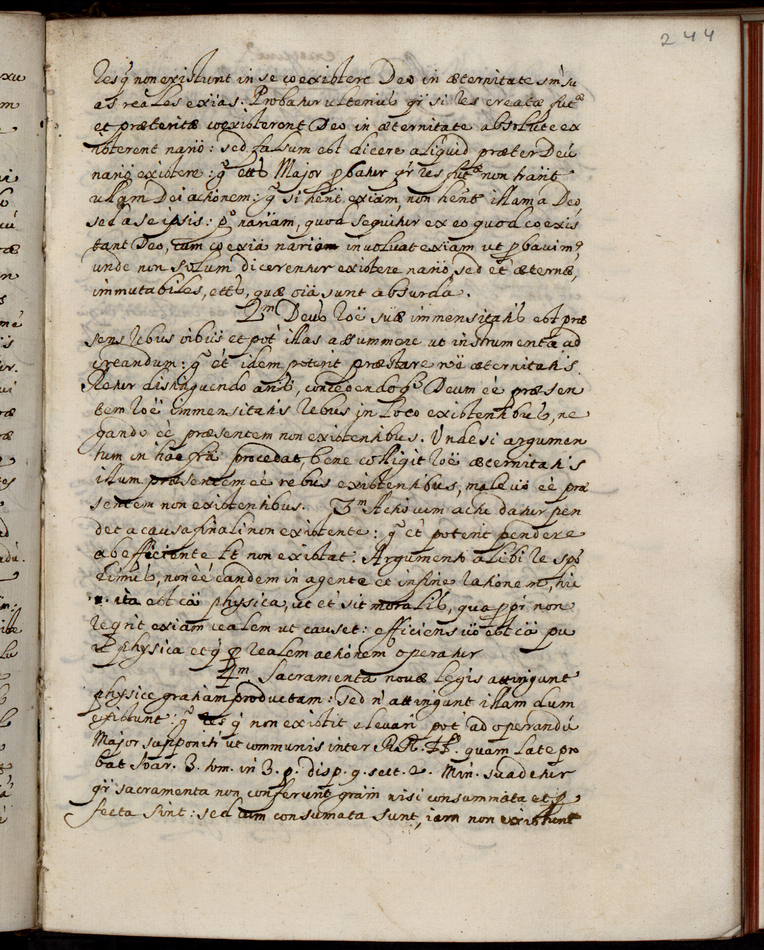 244
res q̃ non existunt in se coexistere Deo in æternitate sm̃ su
as reales exĩas. Probatur ulterius qr̃ si res creatæ fut^æ
et præteritæ coexisterent Deo in æternitate absolute ex
isterent nariõ: sed falsum est dicere aliquid præter Deũ
nariõ existere: g° etc Major pbatur qr̃ res fut^æ non hãnt
ullam Dei actionem: g° si hẽnt exĩam, non hẽnt illam a Deo
sed a se ipsis: nariam, quod sequitur ex eo quod coexis
tant Deo, cum coexĩa nariam involvat exĩam ut pbavim9
unde non solum dicerentur existere nariõ, sed et æternæ,
immutabiles, etc, quæ oĩa sunt absurda.
2^m Deus roẽ suæ immensitatis est præ
sens rebus oĩbus et pot illas assummere ut instrumenta ad
creandum: g° et idem poterit præstare roẽ æternitatis.
Retur distinguendo ants, concedendo Deum eẽ præsen
tem roẽ immensitatis rebus in loco existentibus, ne
gando eẽ præsentem non existentibus. Unde si argumen
tum in hac fra procedat, bene colligit roẽ æternitatis
illum præsentem eẽ rebus existentibus, male vo eẽ præ
sentem non existentibus. 3^m Activum actu datur pen
det a causa finali non existente: g° et poterit pendere
ab efficiente et non existat. Argumenti alibi re spõ
dimus, non eẽ eandem in agente et in fine rationem, hic
ita est cã physica, ut et sit moralis, qua ppr non
reqrit exĩam realem ut causet: efficiens vo est cã pu
re physica et q̃ p realem actionem operatur
4^m Sacramenta novæ legis attingunt
physice gratiam productam: sed ñ attingunt illam dum
existunt: g° res q̃ non existit elevari pot ad operandũ
Major supponitr ut communis inter RR. Th. quam late pro
bat Soar. 3. tom. in 3. p. disp. 9. sect. 2. Min. suadetur
qr̃ sacramenta non conferunt grãm nisi consummata et p
fecta sint: sed cum consumata sunt, iam non existunt